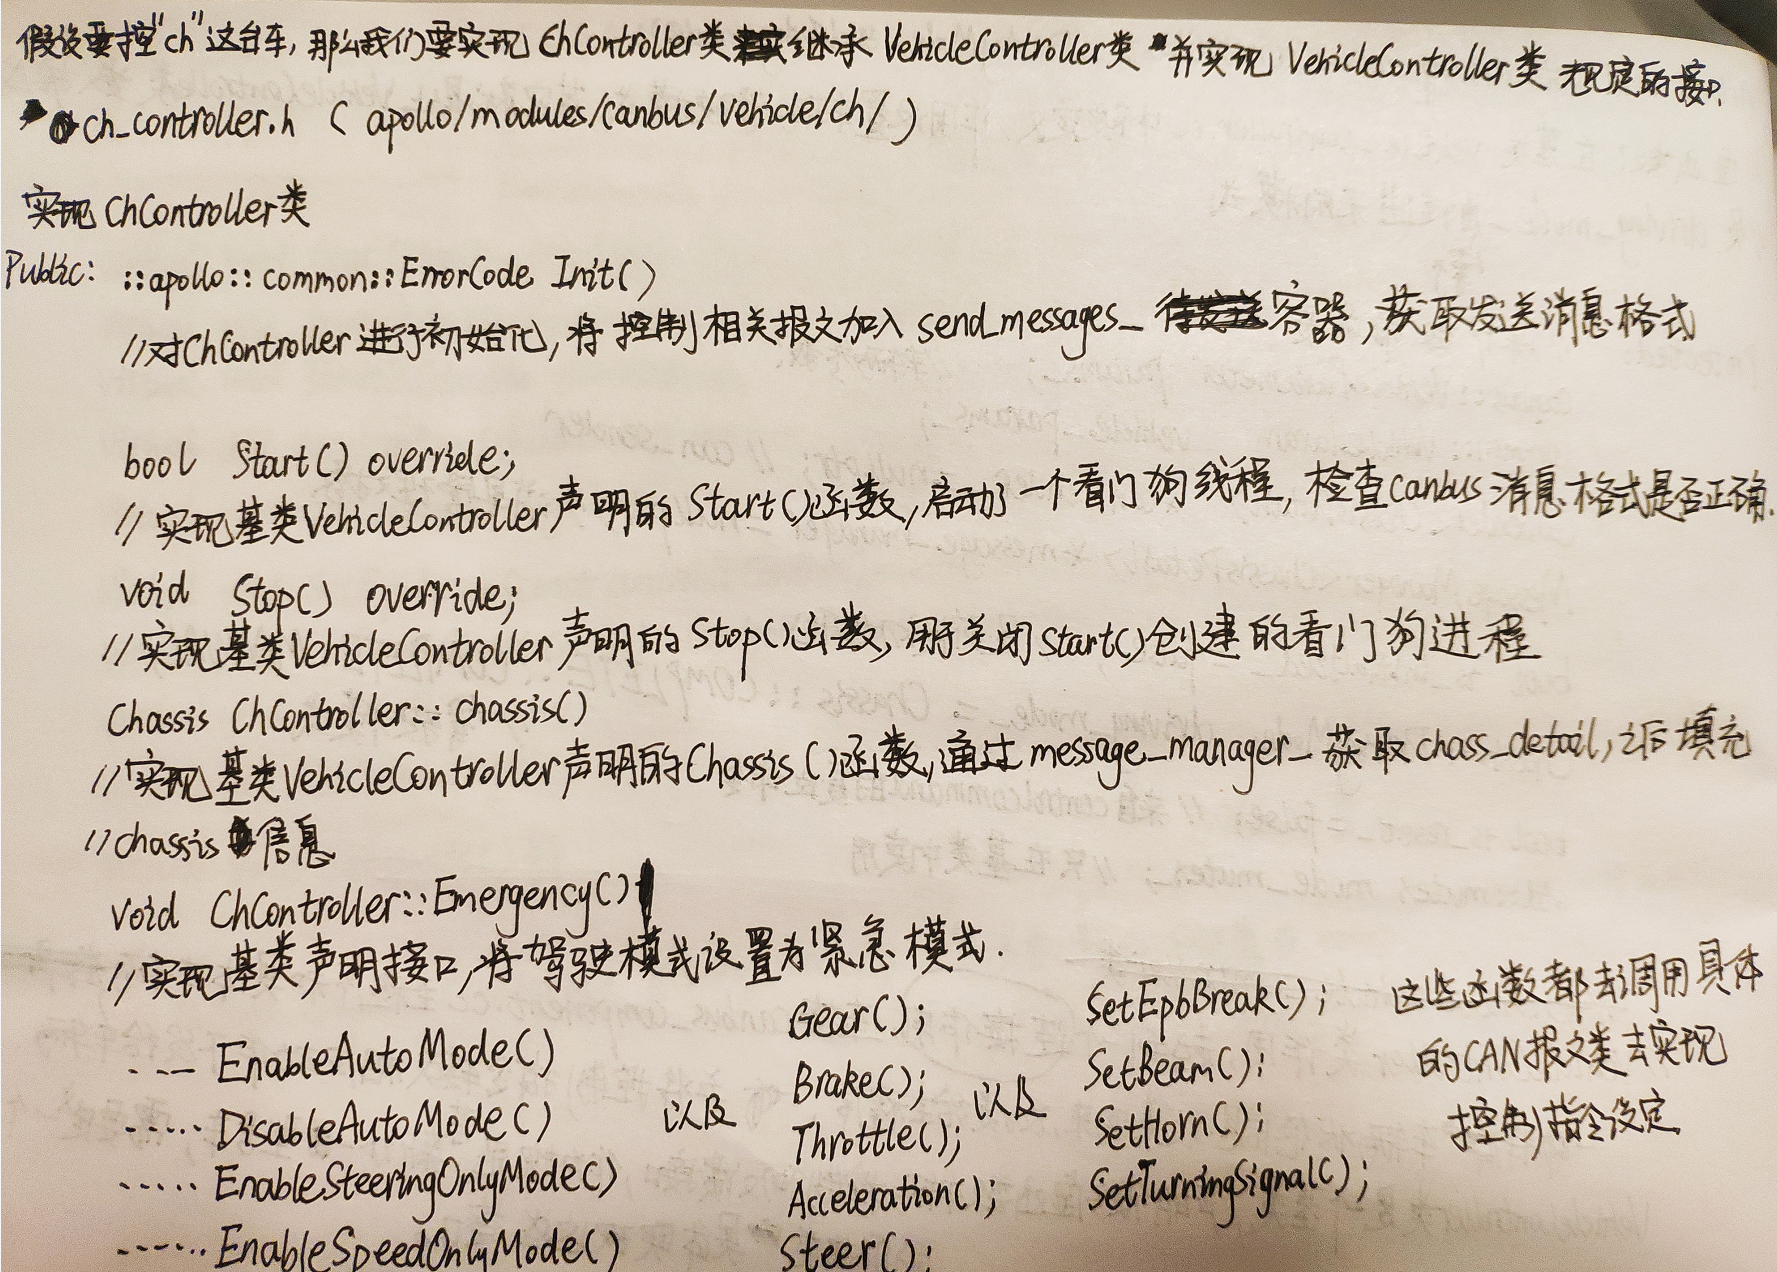 假设要控"ch"这台车,那么我们要实现ChController类继承VehicleController类并实现VehicleController类规定的接口.
ch_controller.h ( apollo/modules/canbus/vehicle/ch/ )
实现ChController类
Public: ::apollo::common::ErrorCode Init()
//对ChController进行初始化,将控制相关报文加入send_messages_容器,获取发送消息格式
bool Start() override;
//实现基类VehicleController声明的Start()函数,启动了一个看门狗线程,检查canbus消息格式是否正确.
void Stop() override;
//实现基类VehicleController声明的Stop()函数,用于关闭Start()创建的看门狗进程
Chassis ChController::chassis()
//实现基类VehicleController声明的Chassis()函数,通过message_manager_获取chass_detail,之后填充
//chassis信息
void ChController::Emergency()
//实现基类声明接口,将驾驶模式设置为紧急模式.
--- EnableAutoMode()
..... DisableAutoMode()
..... EnableSteeringOnlyMode()
...... EnableSpeedOnlyMode()
以及
Gear();
Brake();
Throttle();
Acceleration();
Steer();
以及
SetEpbBreak();
SetBeam();
SetHorn();
SetTurningSignal();
这些函数都去调用具体
的CAN报文类去实现
控制指令设定